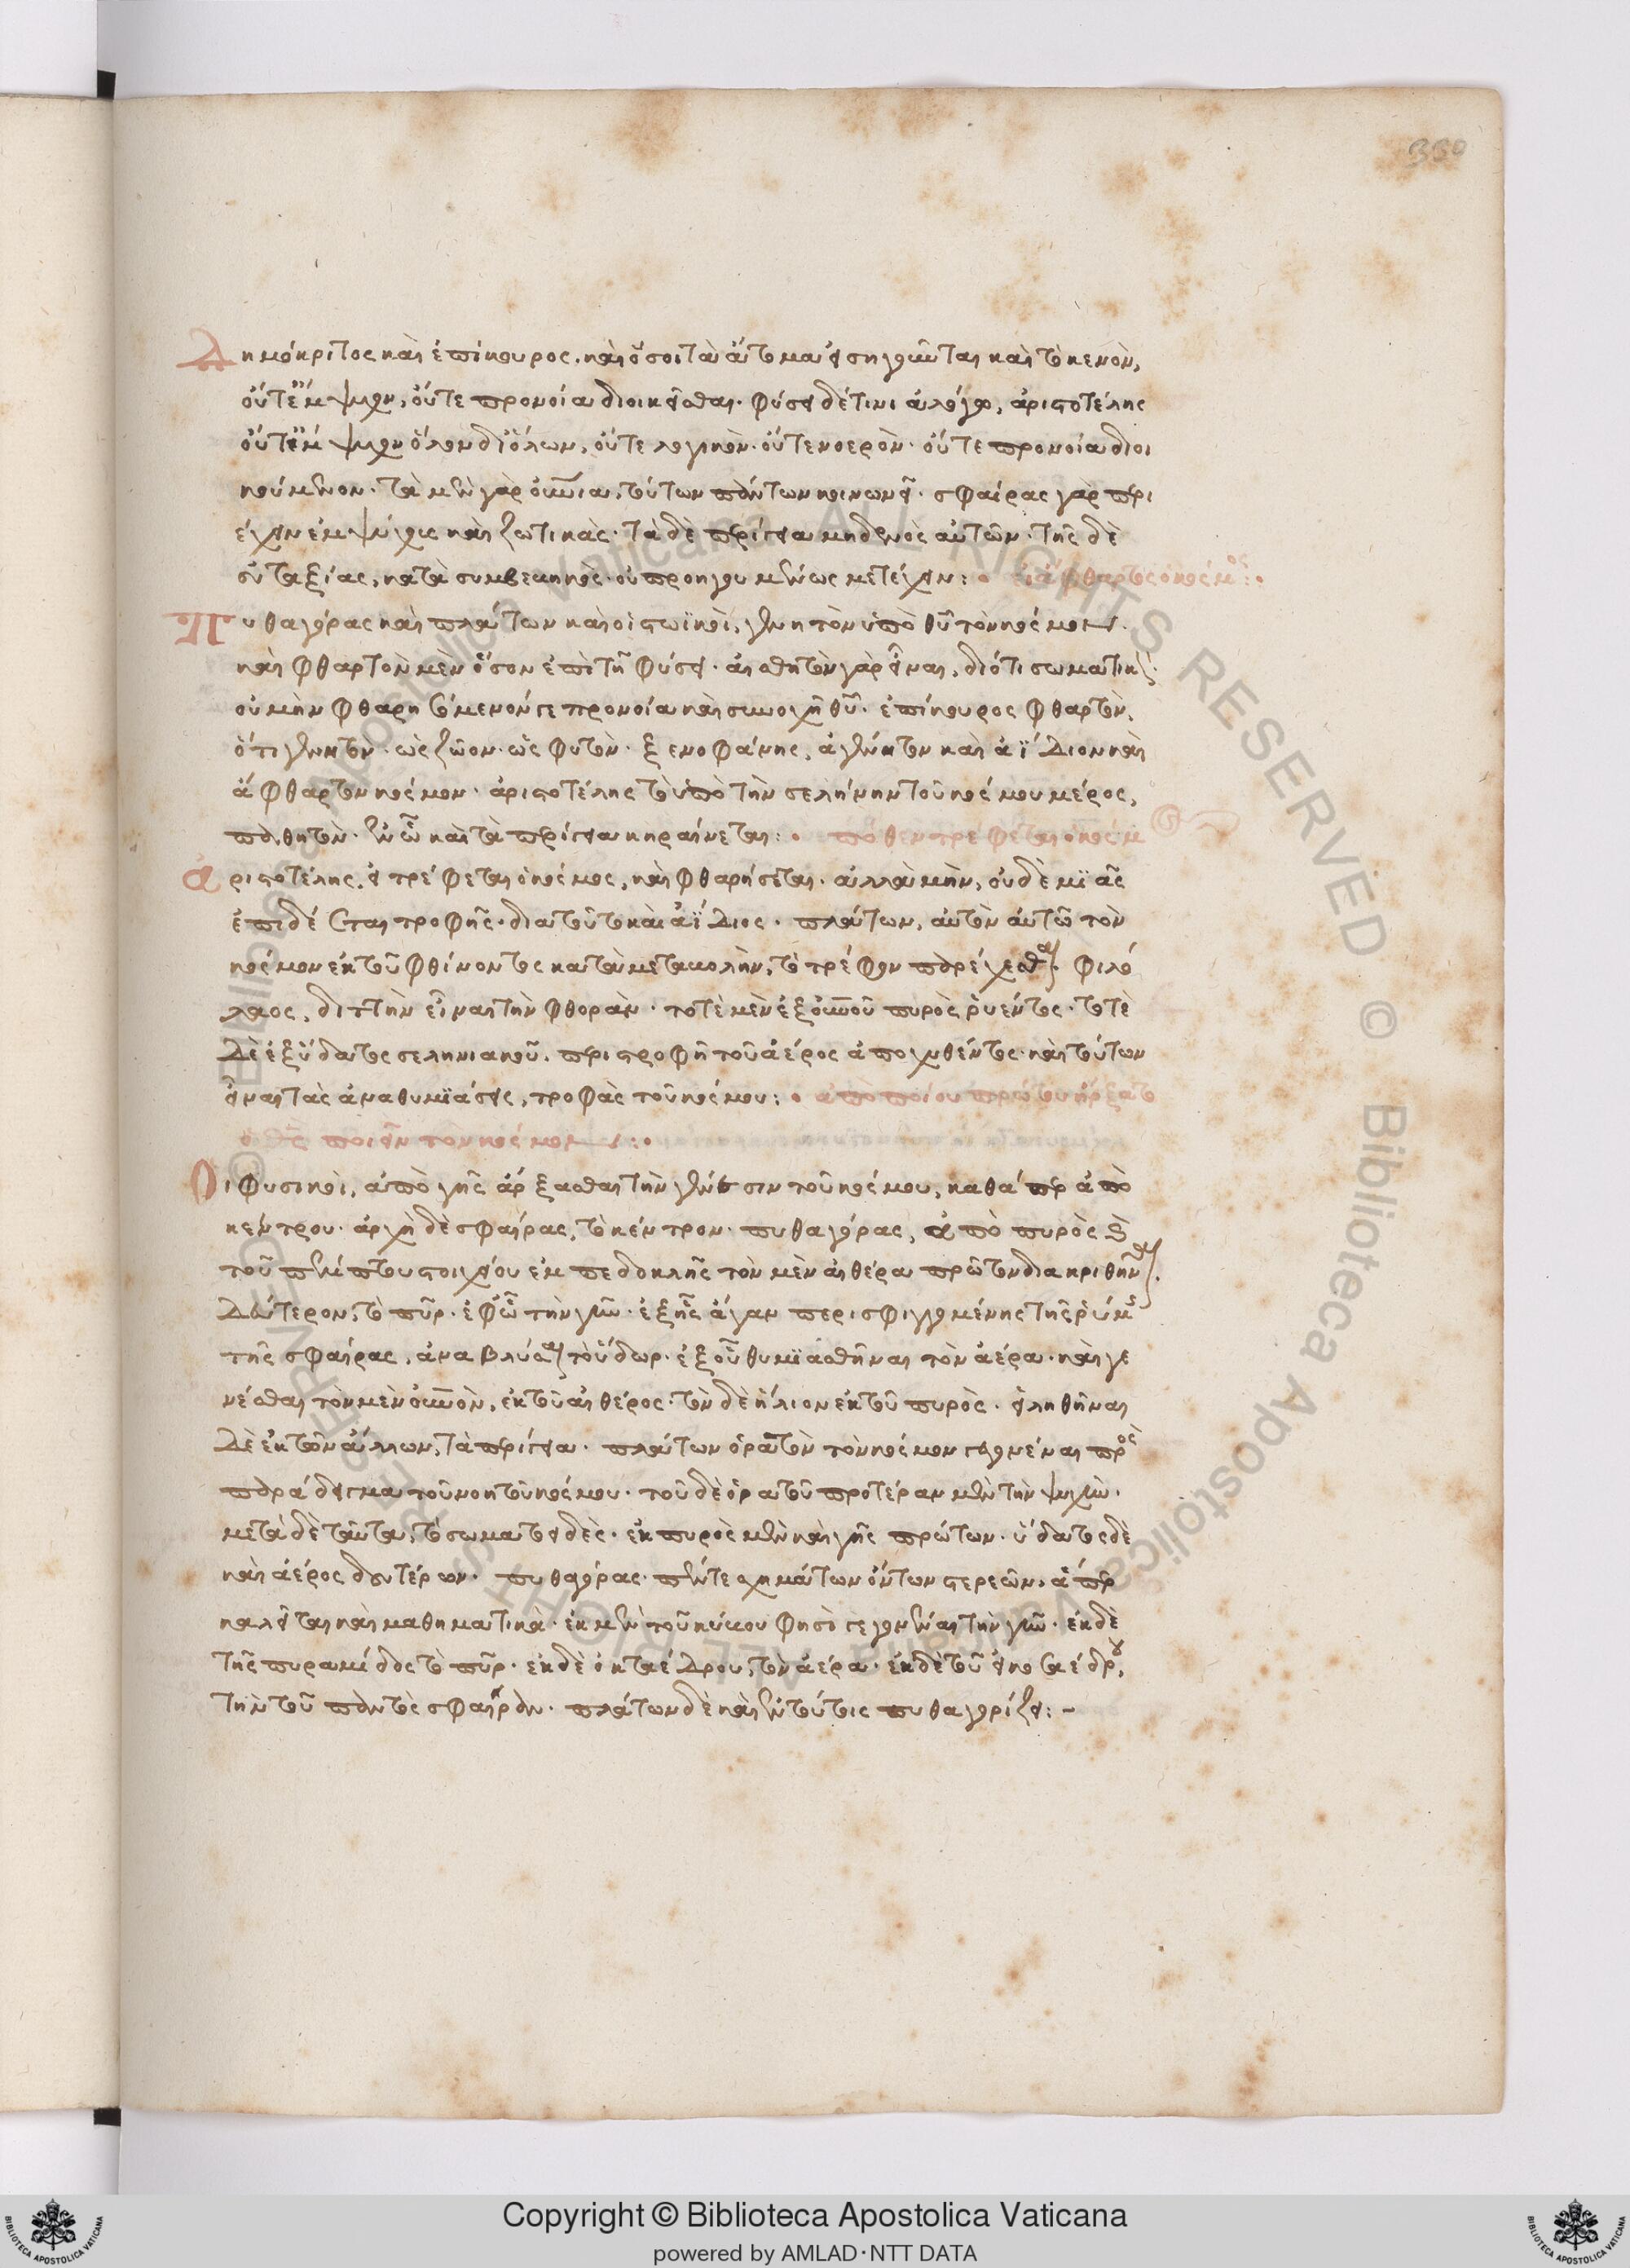 330
Δημόκριτος καὶ ἐπίκουρος. καὶ ὅσοι τὰ ἄτομα εἰσηγοῦνται καὶ τὸ κενὸν,
οὔτε ἔμψυχον, οὔτε προνοία διοικεῖσθαι. φύσει δέ τινι ἀλόγω, ἀριστοτέλης
οὔτε ἔμψυχον ὅλον δι' ὅλων, οὔτε λογικὸν. οὔτε νοερὸν. οὔτε προνοία διοι
κούμενον. τὰ μὲν γὰρ οὐράνια, τούτων πάντων κοινωνεῖ. σφαίρας γὰρ περι
έχειν ἐμψύχους καὶ ζωτικὰς. τὰ δὲ περίγεια μηδενὸς αὐτῶν. τῆς δὲ
εὐταξίας, κατὰ συμβεβηκὸς. οὐ προηγουμένως μετέχειν: • εἰ ἄφθαρτος ὁ κόσμος: •
Πυθαγόρας καὶ πλάτων καὶ οἱ στωϊκοὶ, γεννητὸν ὑπὸ θεοῦ τὸν κόσμον.
καὶ φθαρτὸν μὲν ὅσον ἐπὶ τῆ φύσει. αἰσθητὸν γὰρ εἶναι, διότι σωματικός.
οὐ μὴν φθαρησόμενόν γε προνοία καὶ συνοχῆ θεοῦ. ἐπίκουρος φθαρτὸν,
ὅτι γεννητὸν. ὡς ζῶον. ὡς φυτὸν. ξενοφάνης, ἀγέννητον καὶ ἀΐδιον καὶ
ἄφθαρτον κόσμον. ἀριστοτέλης τὸ ὑπὸ τὴν σελήνην τοῦ κόσμου μέρος,
παθητὸν. ἐν ὧ καὶ τὰ περίγεια κηραίνεται: • πόθεν τρέφεται ὁ κόσμ
ἀριστοτέλης, εἰ τρέφεται ὁ κόσμος, καὶ φθαρήσεται. ἀλλὰ μὴν, οὐδὲ μιᾶς
ἐπιδέεται τροφῆς. διατοῦτο καὶ ἀΐδιος. πλάτων, αὐτὸν αὑτῶ τὸν
κόσμον ἐκ τοῦ φθίνοντος κατὰ μεταβολὴν, τὸ τρέφον παρέχεσθαι. φιλό
λαος, διττὴν εἶναι τὴν φθορὰν. τοτὲ μὲν ἐξ οὐρανοῦ πυρὸς ῥυέντος. τοτὲ
δὲ ἐξ ὕδατος σεληνιακοῦ, περιστροφῆ τοῦ ἀέρος ἀποχυθέντος. καὶ τούτων
εἶναι τὰς ἀναθυμιάσεις, τροφὰς τοῦ κόσμου: • ἀπὸ ποίου πρώτου ἤρξατο
ὁ θεὸς ποιεῖν τὸν κόσμον: •
Οἱ φυσικοὶ, ἀπὸ γῆς ἄρξασθαι τὴν γένεσιν τοῦ κόσμου, καθάπερ ἀπὸ
κέντρου. ἀρχὴ δὲ σφαίρας, τὸ κέντρον. πυθαγόρας, ἀπὸ πυρὸς καὶ
τοῦ πέμπτου στοιχείου ἐμπεδοκλῆς τὸν μὲν αἰθέρα πρῶτον διακριθῆναι.
δεύτερον, τὸ πῦρ. ἐφ' ὧ τὴν γῆν. ἐξ ἧς ἄγαν περισφιγγομένης τῆς ῥύμης
τῆς σφαίρας, ἀναβλύσαι τὸ ὕδωρ. ἐξ οὗ θυμιασθῆναι τὸν ἀέρα. καὶ γε
νέσθαι τὸν μὲν οὐρανὸν, ἐκ τοῦ αἰθέρος. τὸν δὲ ἥλιον ἐκ τοῦ πυρὸς. εἰληθῆναι
δὲ ἐκ τῶν ἄλλων, τὰ περίγεια. πλάτων ὁρατὸν τὸν κόσμον γεγονέναι πρὸς
παράδειγμα τοῦ νοητοῦ κόσμου. τοῦ δὲ ὁρατοῦ προτέραν μὲν τὴν ψυχὴν.
μετὰ δὲ ταῦτα, τὸ σωματοειδὲς. ἐκ πυρὸς μὲν καὶ γῆς πρώτων. ὕδατος δὲ
καὶ ἀέρος δευτέρων. πυθαγόρας. πέντε σχημάτων ὄντων στερεῶν, ἅπερ
καλεῖται καὶ μαθηματικὰ. ἐκ μὲν τοῦ κύβου φησὶ γεγονέναι τὴν γῆν. ἐκ δὲ
τῆς πυραμίδος τὸ πῦρ. ἐκ δὲ ὀκταέδρου, τὸν ἀέρα. ἐκ δὲ τοῦ εἰκοσαέδρου,
τὴν τοῦ παντὸς σφαῖραν. πλάτων δὲ καὶ ἐν τούτοις πυθαγορίζει: –
Copyright © Biblioteca Apostolica Vaticana
powered by AMLAD·NTT DATA